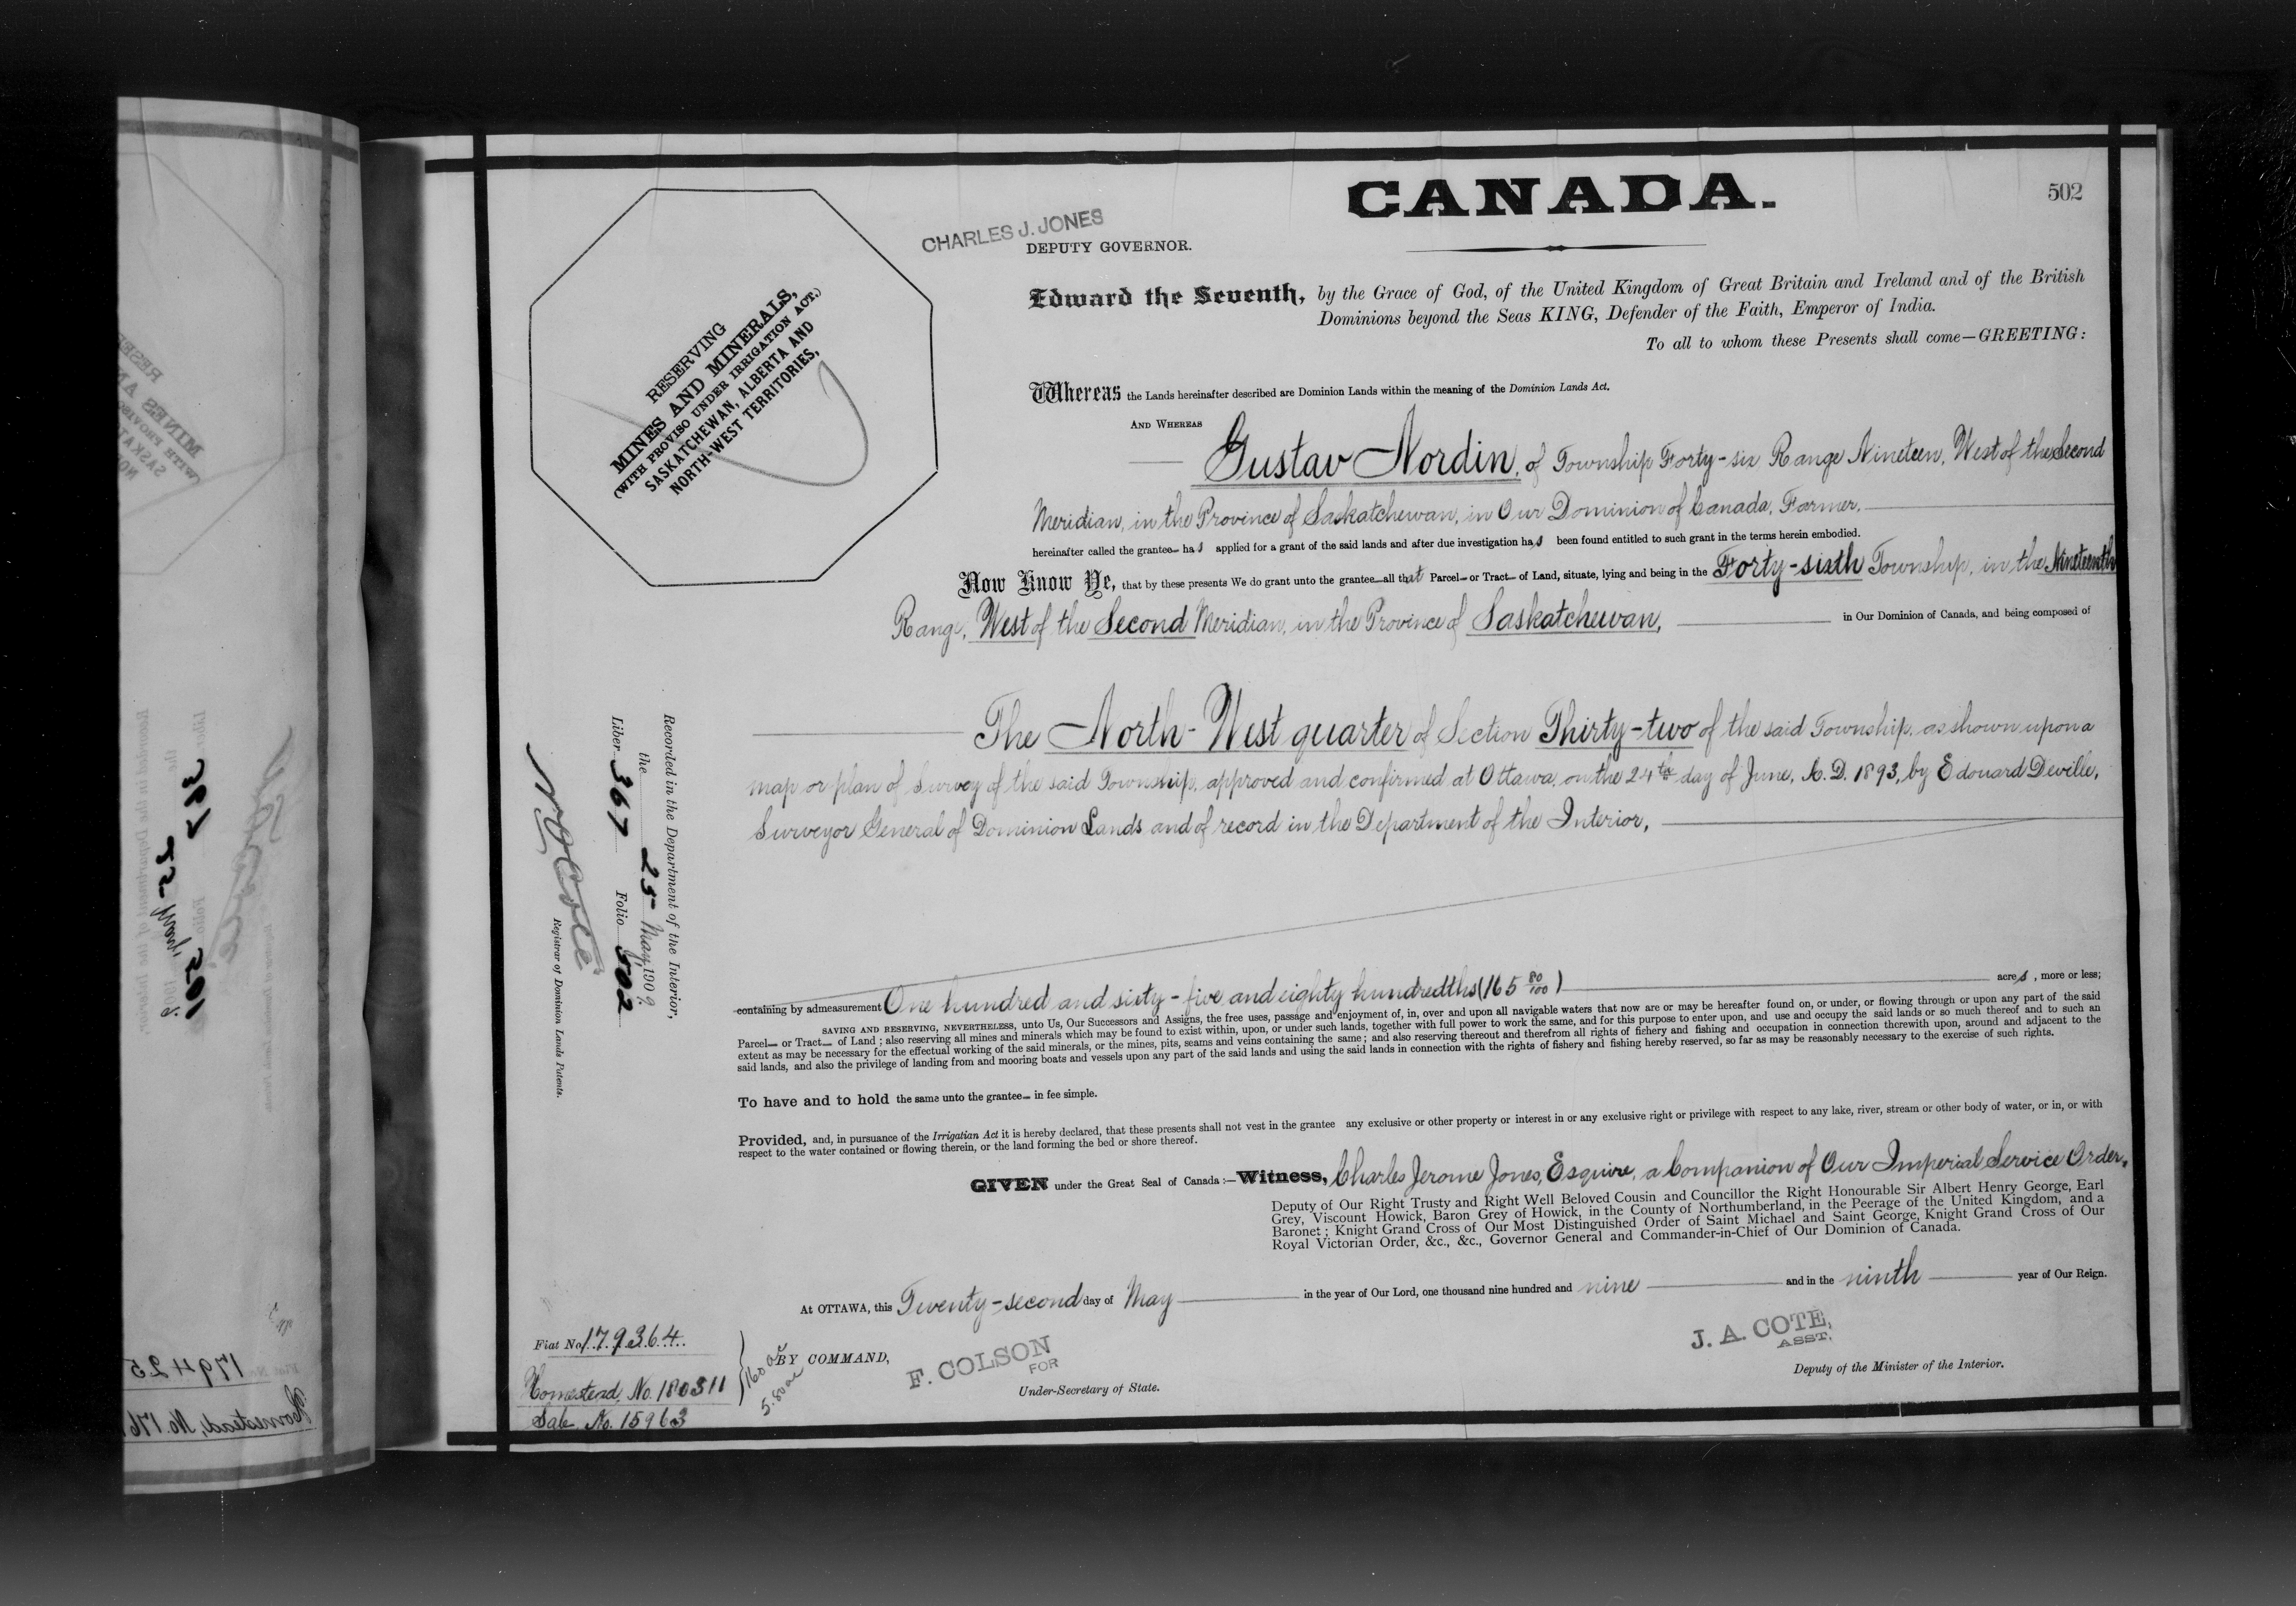 CANADA.
502
CHARLES J. JONES
DEPUTY GOVERNOR.
RESERVING
MINES AND MINERALS,
(WITH PROVISO UNDER IRRIGATION ACT.)
SASKATCHEWAN, ALBERTA AND
NORTH-WEST TERRITORIES,
Edward the Seventh, by the Grace of God, of the United Kingdom of Great Britain and Ireland and of the British
Dominions beyond the Seas KING, Defender of the Faith, Emperor of India.
To all to whom these Presents shall come—GREETING:
Whereas the Lands hereinafter described are Dominion Lands within the meaning of the Dominion Lands Act.
AND WHEREAS
Gustav Nordin, of Township Forty-six Range Nineteen, West of the Second
Meridian, in the Province of Saskatchewan, in Our Dominion of Canada, Farmer,
hereinafter called the grantee has applied for a grant of the said lands and after due investigation has been found entitled to such grant in the terms herein embodied.
Now Know Ye, that by these presents We do grant unto the grantee all that Parcel or Tract of Land, situate, lying and being in the Forty-sixth Township, in the Nineteenth
Range, West of the Second Meridian, in the Province of Saskatchewan, in Our Dominion of Canada, and being composed of
The North-West quarter of Section Thirty-two of the said Township, as shown upon a
map or plan of Survey of the said Township, approved and confirmed at Ottawa, on the 24th day of June, A.D. 1893, by Edouard Deville,
Surveyor General of Dominion Lands and of record in the Department of the Interior,
containing by admeasurement One hundred and sixty-five and eighty hundredths (165 80/100) acres, more or less;
SAVING AND RESERVING, NEVERTHELESS, unto Us, Our Successors and Assigns, the free uses, passage and enjoyment of, in, over and upon all navigable waters that now are or may be hereafter found on, or under, or flowing through or upon any part of the said
Parcel or Tract of Land; also reserving all mines and minerals which may be found to exist within, upon, or under such lands, together with full power to work the same, and for this purpose to enter upon, and use and occupy the said lands or so much thereof and to such an
extent as may be necessary for the effectual working of the said minerals, or the mines, pits, seams and veins containing the same; and also reserving thereout and therefrom all rights of fishery and fishing and occupation in connection therewith upon, around and adjacent to the
said lands, and also the privilege of landing from and mooring boats and vessels upon any part of the said lands and using the said lands in connection with the rights of fishery and fishing hereby reserved, so far as may be reasonably necessary to the exercise of such rights.
To have and to hold the same unto the grantee in fee simple.
Provided, and, in pursuance of the Irrigatian Act it is hereby declared, that these presents shall not vest in the grantee any exclusive or other property or interest in or any exclusive right or privilege with respect to any lake, river, stream or other body of water, or in, or with
respect to the water contained or flowing therein, or the land forming the bed or shore thereof.
GIVEN under the Great Seal of Canada:—Witness, Charles Jerome Jones, Esquire, a Companion of Our Imperial Service Order,
Deputy of Our Right Trusty and Right Well Beloved Cousin and Councillor the Right Honourable Sir Albert Henry George, Earl
Grey, Viscount Howick, Baron Grey of Howick, in the County of Northumberland, in the Peerage of the United Kingdom, and a
Baronet; Knight Grand Cross of Our Most Distinguished Order of Saint Michael and Saint George, Knight Grand Cross of Our
Royal Victorian Order, &c., &c., Governor General and Commander-in-Chief of Our Dominion of Canada.
At OTTAWA, this Twenty-second day of May in the year of Our Lord, one thousand nine hundred and nine and in the ninth year of Our Reign.
BY COMMAND,
F. COLSON
FOR
Under-Secretary of State.
J. A. COTE,
ASST.
Deputy of the Minister of the Interior.
Fiat No 179364.
Homestead, No. 180311
Sale, No. 15963
160 ac
5.80 ac
Recorded in the Department of the Interior,
the 25 May, 1909.
Liber 367 Folio 502
N O Coté
Registrar of Dominion Lands Patents.